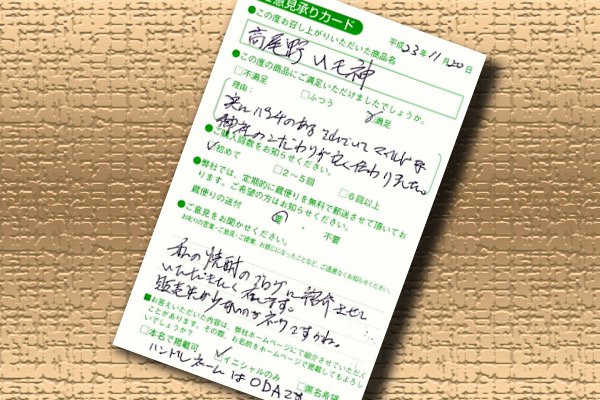 ご意見承りカード
平成23年11月20日
●この度お召し上がりいただいた商品名
高尾野 いも神
●この度の商品にご満足いただけましたでしょうか。
□不満足 □ふつう □満足
理由：
実にパンチのある それでいてマイルドな
御社のこだわりが良く伝わりました。
●ご購入回数をお知らせください。
□初めて □2～5回 □6回以上
●弊社では、定期的に蔵便りを無料で郵送させて頂いております。ご希望の方はお知らせください。
蔵便りの送付 要 不要
●ご意見をお聞かせください。
お叱りの言葉・ご意見・ご提案、お感じになったことなど、ご遠慮なくお知らせください。
私の焼酎のブログに紹介させて
いただきたく存じます。
■お答えいただいた内容は、弊社ホームページにて紹介させていただくことがあります。その際、お名前をホームページで掲載してもよろしいでしょうか？
□本名で掲載可 □イニシャルのみ □匿名希望
ハンドルネームはODAです